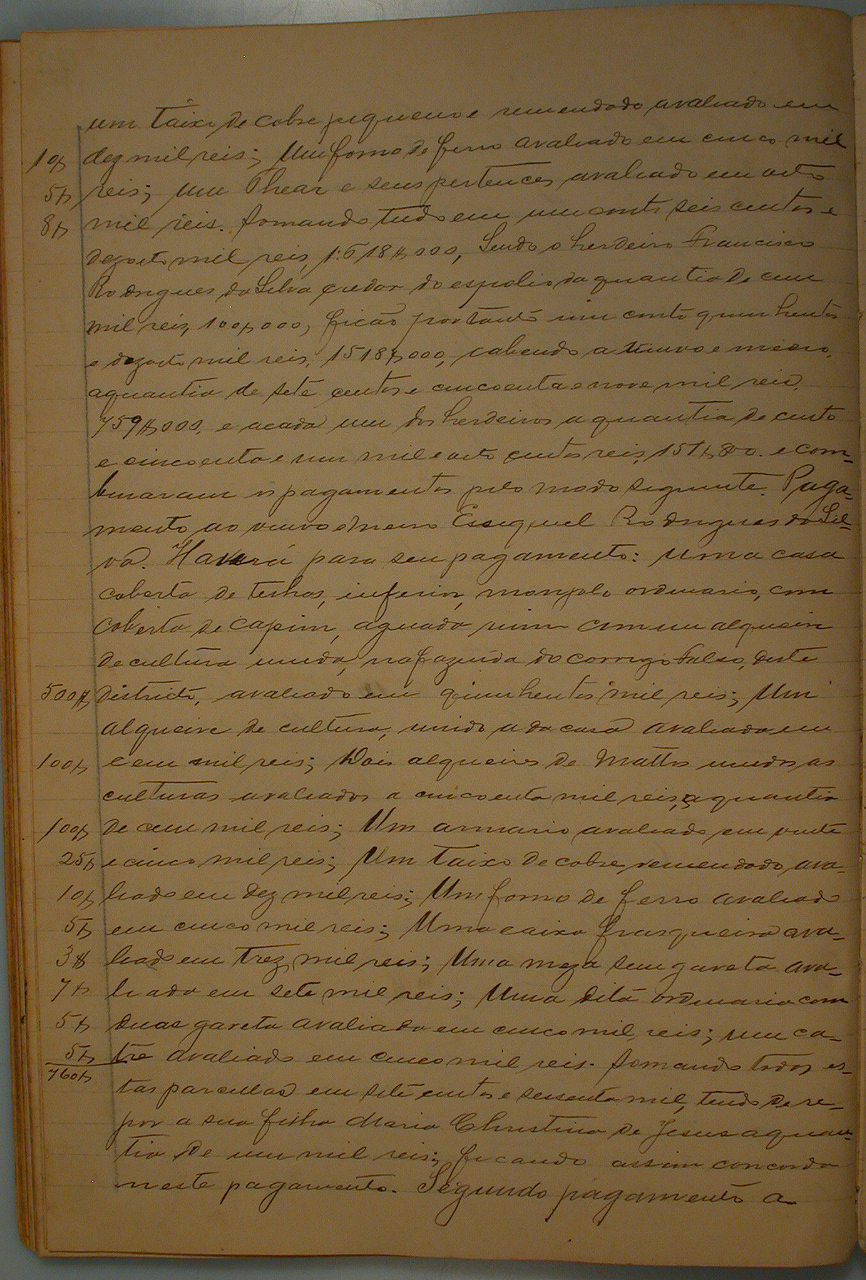 um táixo de cobre piqueno e remendado avaliado em
10$ dez mil reis; Um forno de ferro avaliado em cinco mil
5$ reis; um Thear e seus pertences avaliado em oito
8$ mil reis. Somando tudo em um conto seis centos e
dezoito mil reis, 1:618$000, Sendo o herdeiro Francisco
Rodrigues da Silva credor do espolio da quantia de cem
mil reis, 100$000, ficão portanto um conto quinhentos
e dezoito mil reis, 1518$000, cabendo a viuvo e meeiro,
a quantia de sete centos e cincoenta e nove mil reis,
759$000. e a cada um dos herdeiros a quantia de cento
e cincoenta e um mil e oito centos reis, 151$800. e com-
binaram os pagamentos pelo modo seguinte. Paga-
mento ao viuvo e meeiro Esequel Rodrigues da Sil-
va. Haverá para seu pagamento: uma casa
coberta de telhas, inferior, monjolo ordinario, com
coberta de capim, aguada ruim com um alqueire
de cultura unida, na fazenda do corrego Falso, deste
500$ districto, avaliado em quinhentos mil reis; Um
alqueire de cultura, unido a da casa avaliada em
100$ cem mil reis; Dois alqueires de Mattos unidos as
culturas avaliados a cincoenta mil reis, a quantia
100$ de cem mil reis; Um armario avaliado em vinte
25$ e cinco mil reis; Um taixo de cobre remendado, ava-
10$ liado em dez mil reis; Um forno de ferro avaliado
5$ em cinco mil reis; Uma caixa frasqueira ava-
3$ liado em trez mil reis; Uma meza sem gaveta ava-
7$ liado em sete mil reis; Uma dita ordinaria com
5$ duas gaveta avaliada em cinco mil reis; um ca-
5$ tre avaliado em cinco mil reis. Somando todos es-
760$ tas parcellas em sete centos e sessenta mil, tendo de re-
por a sua filha Maria Christina de Jesus a quan-
tia de um mil reis; ficando assim concorda
neste pagamento. Segundo pagamento a